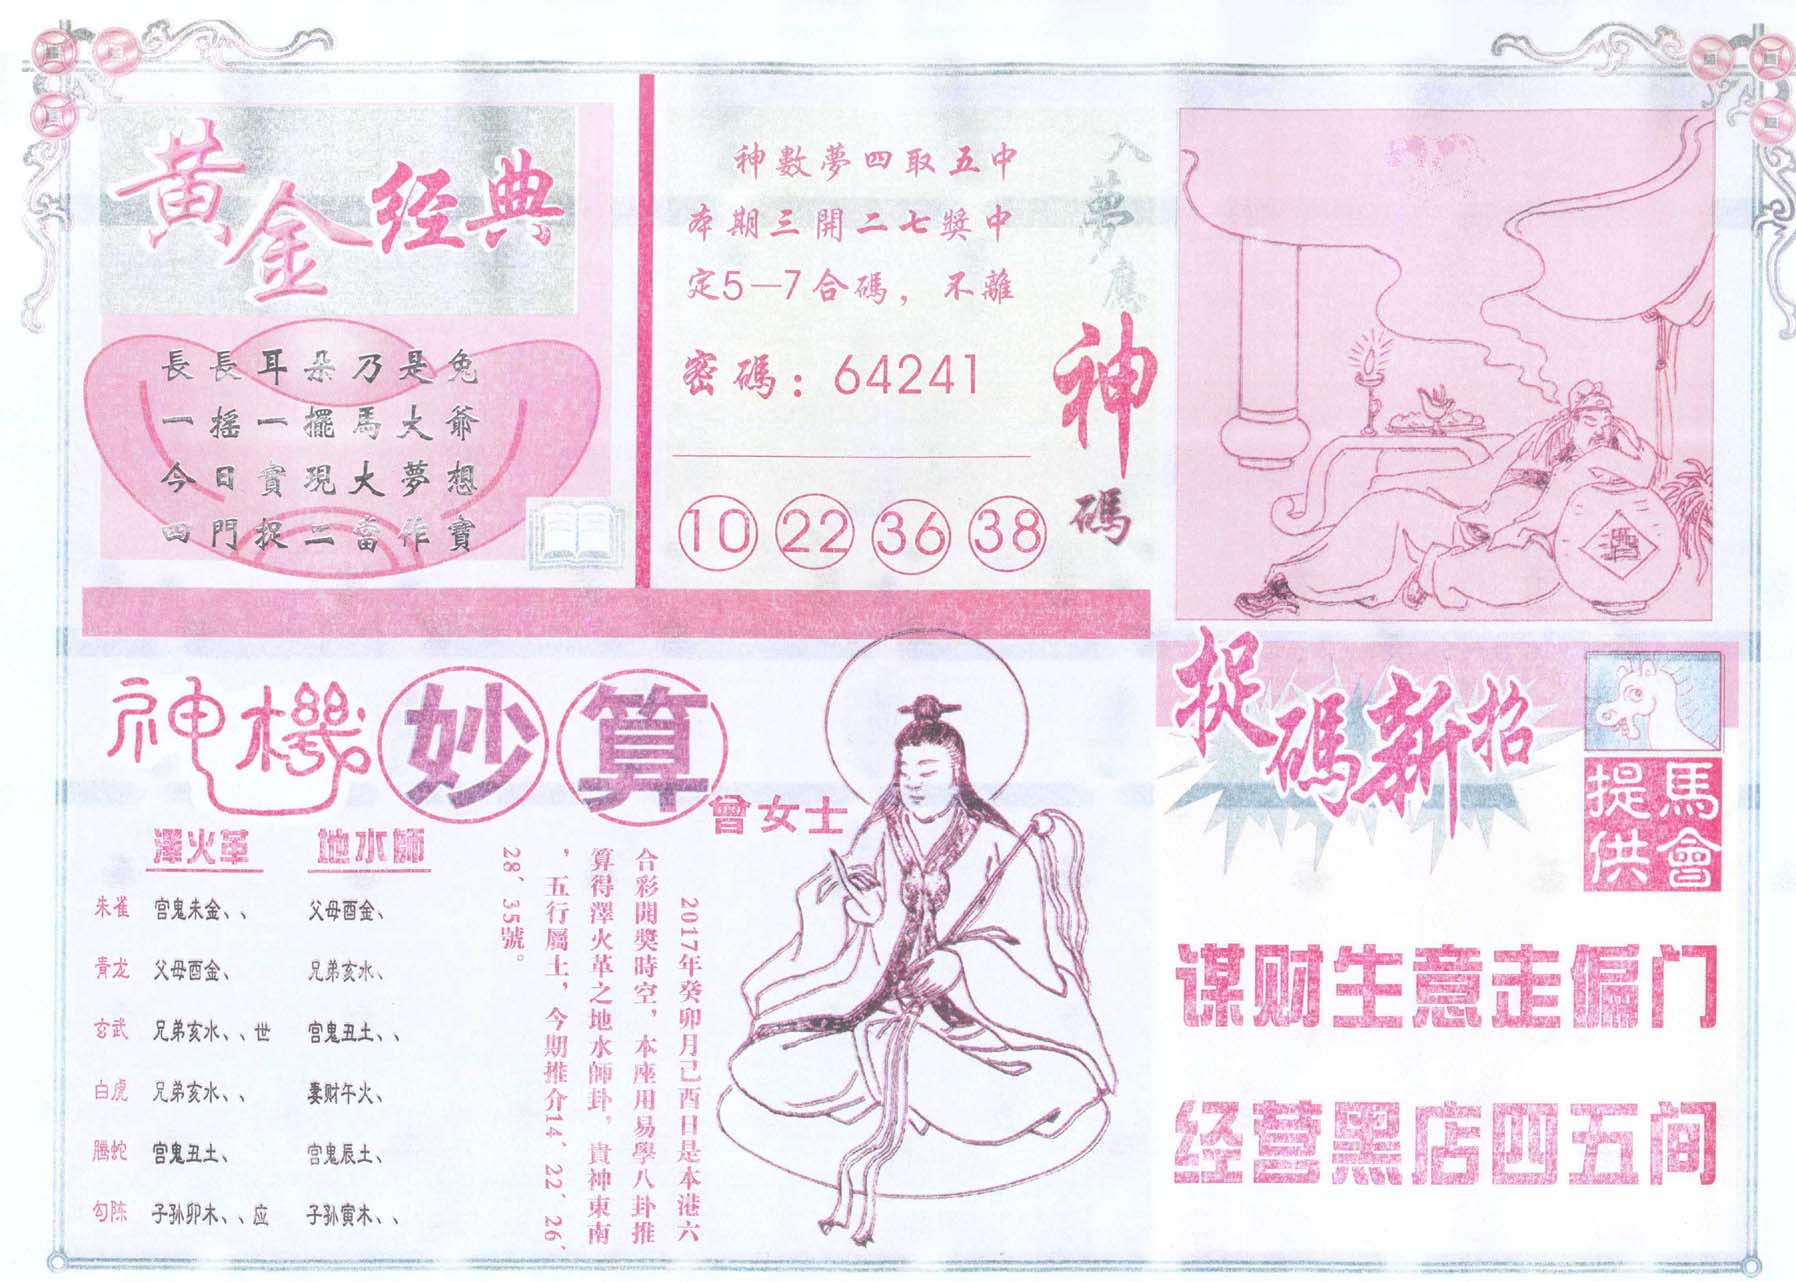 黄金经典
長長耳朵乃是兔
一搖一擺馬大爺
今日實現大夢想
四門捉二當作寶
神數夢四取五中
本期三開二七獎中
定5—7合碼，不離
密碼：64241
10 22 36 38
入夢應神碼
神機妙算
曾女士
澤火革 地水師
朱雀 宫鬼未金、、 父母酉金、
青龙 父母酉金、 兄弟亥水、
玄武 兄弟亥水、、世 宫鬼丑土、、
白虎 兄弟亥水、、 妻财午火、
腾蛇 宫鬼丑土、 宫鬼辰土、
勾陈 子孙卯木、、应 子孙寅木、、
2017年癸卯月己酉日是本港六
合彩開獎時空，本座用易學八卦推
算得澤火革之地水師卦，貴神東南
，五行屬土，今期推介14、22、26、
28、35號。
捉碼新招
馬會
提供
谋财生意走偏门
经营黑店四五间